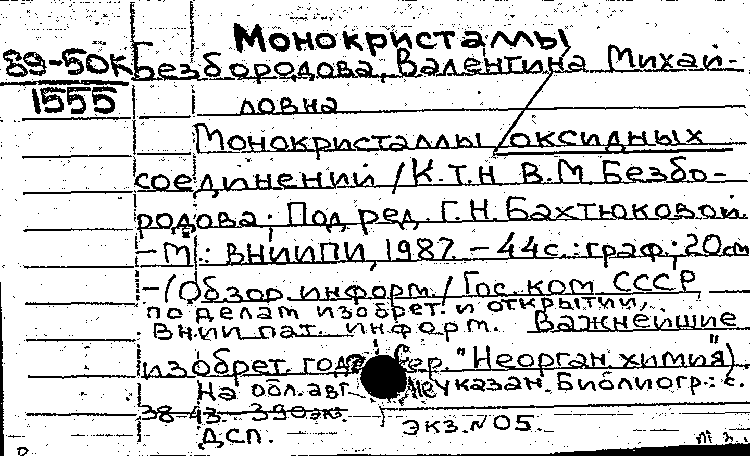 Монокристаллы
89-50К Безбородова, Валентина Михай-
1555 ловна
Монокристаллы оксидных
соединений / К.Т.Н В.М Безбо-
родова; Под ред. Г.Н. Бахтюковой
- М.: ВНИИПИ, 1987. - 44с.: граф.; 20см
- (Обзор. информ. / Гос. ком СССР
по делам изобрет. и открытий,
ВНИИ пат. информ. Важнейшие
изобрет. года. Сер. "Неорган. химия")
На обл. авт. не указан. Библиогр.: с.
38-43. 390 экз.
ДСП. ЭКЗ. N 05.